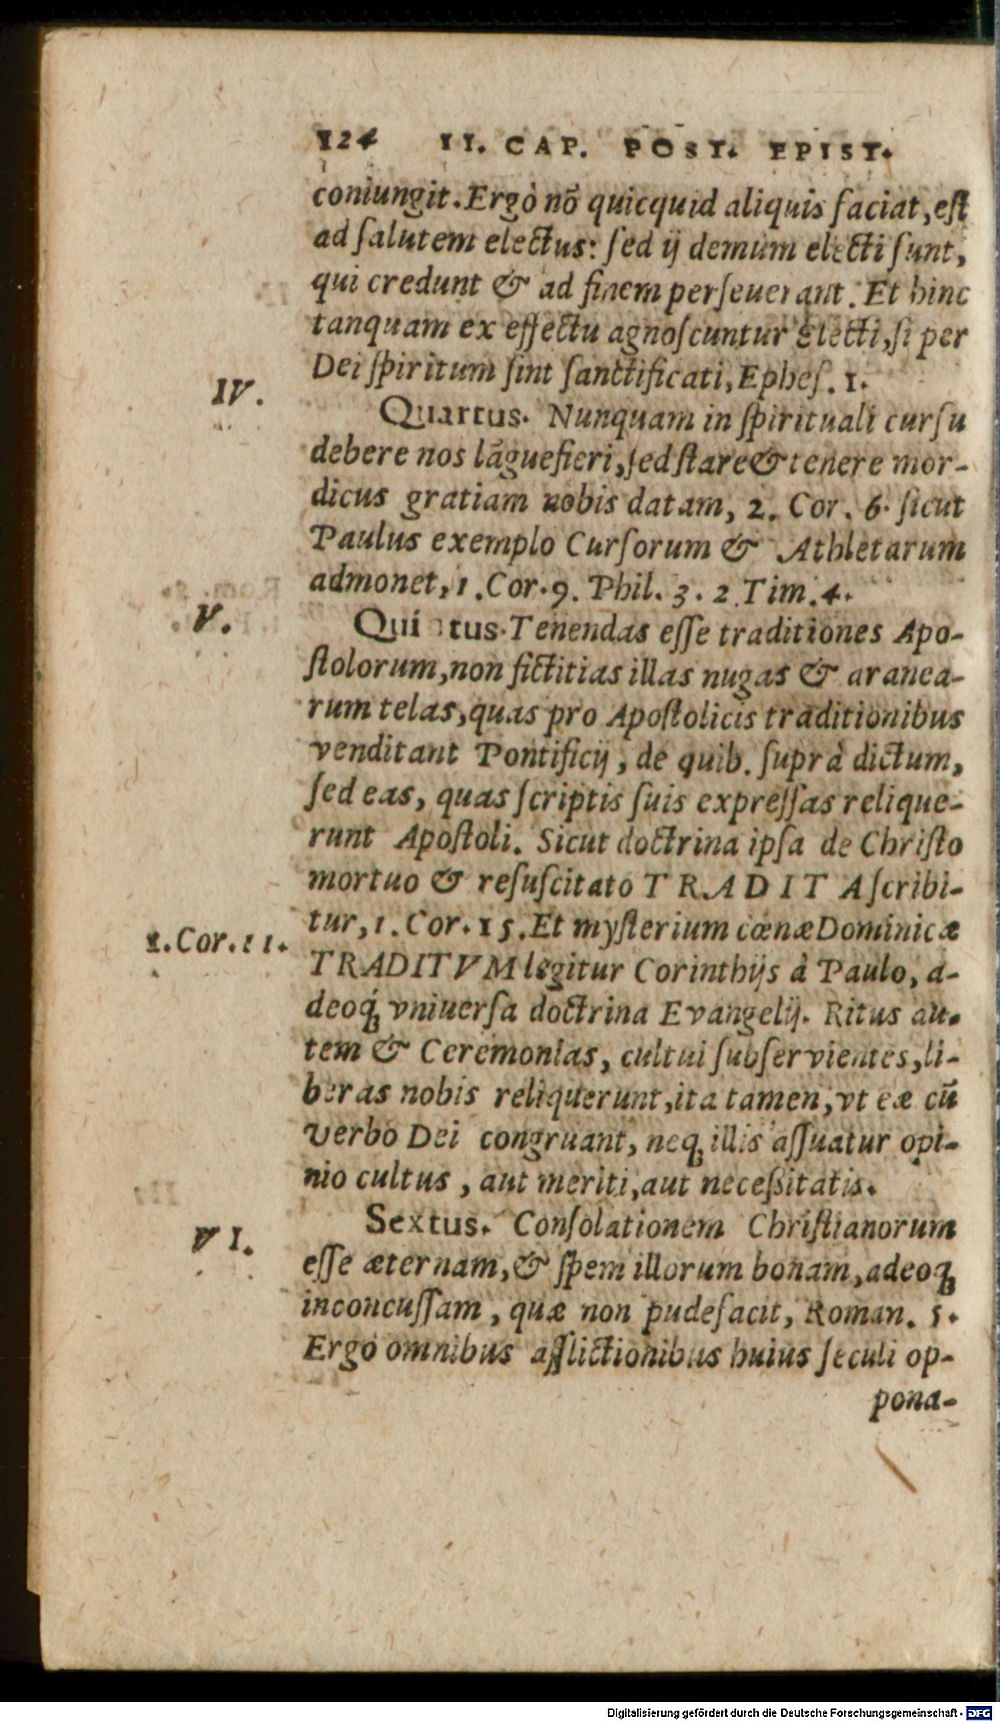 124 II. CAP. POST. EPIST.
coniungit. Ergò nō quicquid aliquis faciat, est
ad ſalutem electus: ſed ij demum electi ſunt,
qui credunt & ad finem perſeuerant. Et hinc
tanquam ex effectu agnoſcuntur Electi, ſi per
Dei ſpiritum ſint ſanctificati, Epheſ. 1.
IV.
Quartus. Nunquam in ſpirituali curſu
debere nos lāguefieri, ſed ſtare & tenere mor-
dicus gratiam nobis datam, 2. Cor. 6. ſicut
Paulus exemplo Curſorum & Athletarum
admonet, 1. Cor. 9. Phil. 3. 2 Tim. 4.
V.
Quintus. Tenendas eſſe traditiones Apo-
ſtolorum, non fictitias illas nugas & aranea-
rum telas, quas pro Apoſtolicis traditionibus
venditant Pontificij, de quib. ſuprà dictum,
ſed eas, quas ſcriptis ſuis expreſſas relique-
runt Apoſtoli. Sicut doctrina ipſa de Chriſto
mortuo & reſuſcitato TRADIT Aſcribi-
tur, 1. Cor. 15. Et myſterium cœnæ Dominicæ
1. Cor. 11.
TRADITVM legitur Corinthijs à Paulo, a-
deoq́ꝫ vniuerſa doctrina Evangelij. Ritus au-
tem & Ceremonias, cultui ſubſervientes, li-
beras nobis reliquerunt, ita tamen, vt eæ cū
verbo Dei congruant, neqꝫ illis aſſuatur opi-
nio cultus, aut meriti, aut neceſſitatis.
VI.
Sextus. Conſolationem Chriſtianorum
eſſe æternam, & ſpem illorum bonam, adeoqꝫ
inconcuſſam, quæ non pudefacit, Roman. 5.
Ergò omnibus afflictionibus huius ſeculi op-
pona-
Digitalisierung gefördert durch die Deutsche Forschungsgemeinschaft - DFG